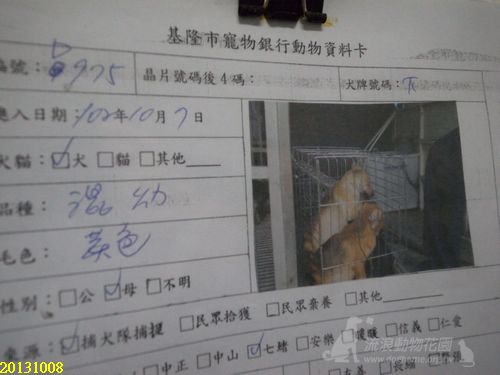 基隆市寵物銀行動物資料卡
編號：D975 晶片號碼後4碼： 犬牌號碼：
進入日期：102年10月7日
犬貓：☑犬 □貓 □其他
品種：混幼
毛色：黃色
性別：□公 ☑母 □不明
來源：☑捕犬隊捕捉 □民眾拾獲 □民眾棄養 □其他
□中正 □中山 ☑七堵 □安樂 □暖暖 □信義 □仁愛
流浪動物花園
www.doghome.org.tw
20131008